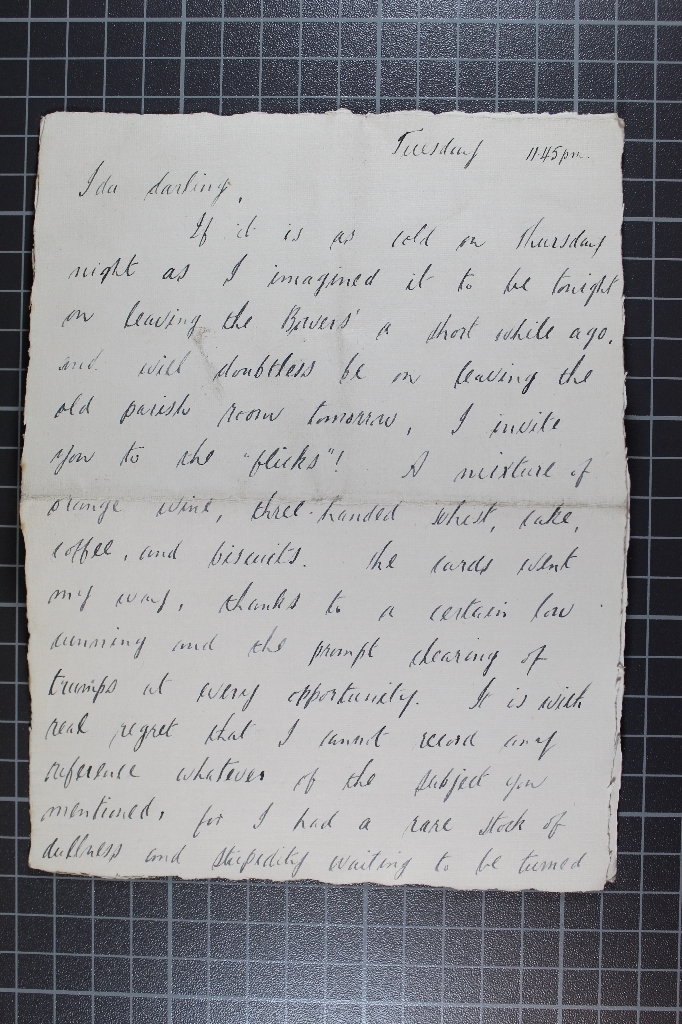 Tuesday 11.45pm.
Ida darling,
If it is as cold on Thursday
night as I imagined it to be tonight
on leaving the Bowers' a short while ago,
and will doubtless be on leaving the
old parish room tomorrow, I invite
you to the "flicks"! A mixture of
orange wine, three-handed whist, cake,
coffee, and biscuits. The cards went
my way, thanks to a certain low
cunning and the prompt clearing of
trumps at every opportunity. It is with
real regret that I cannot record any
reference whatever of the subject you
mentioned, for I had a rare stock of
dullness and stupidity waiting to be turned